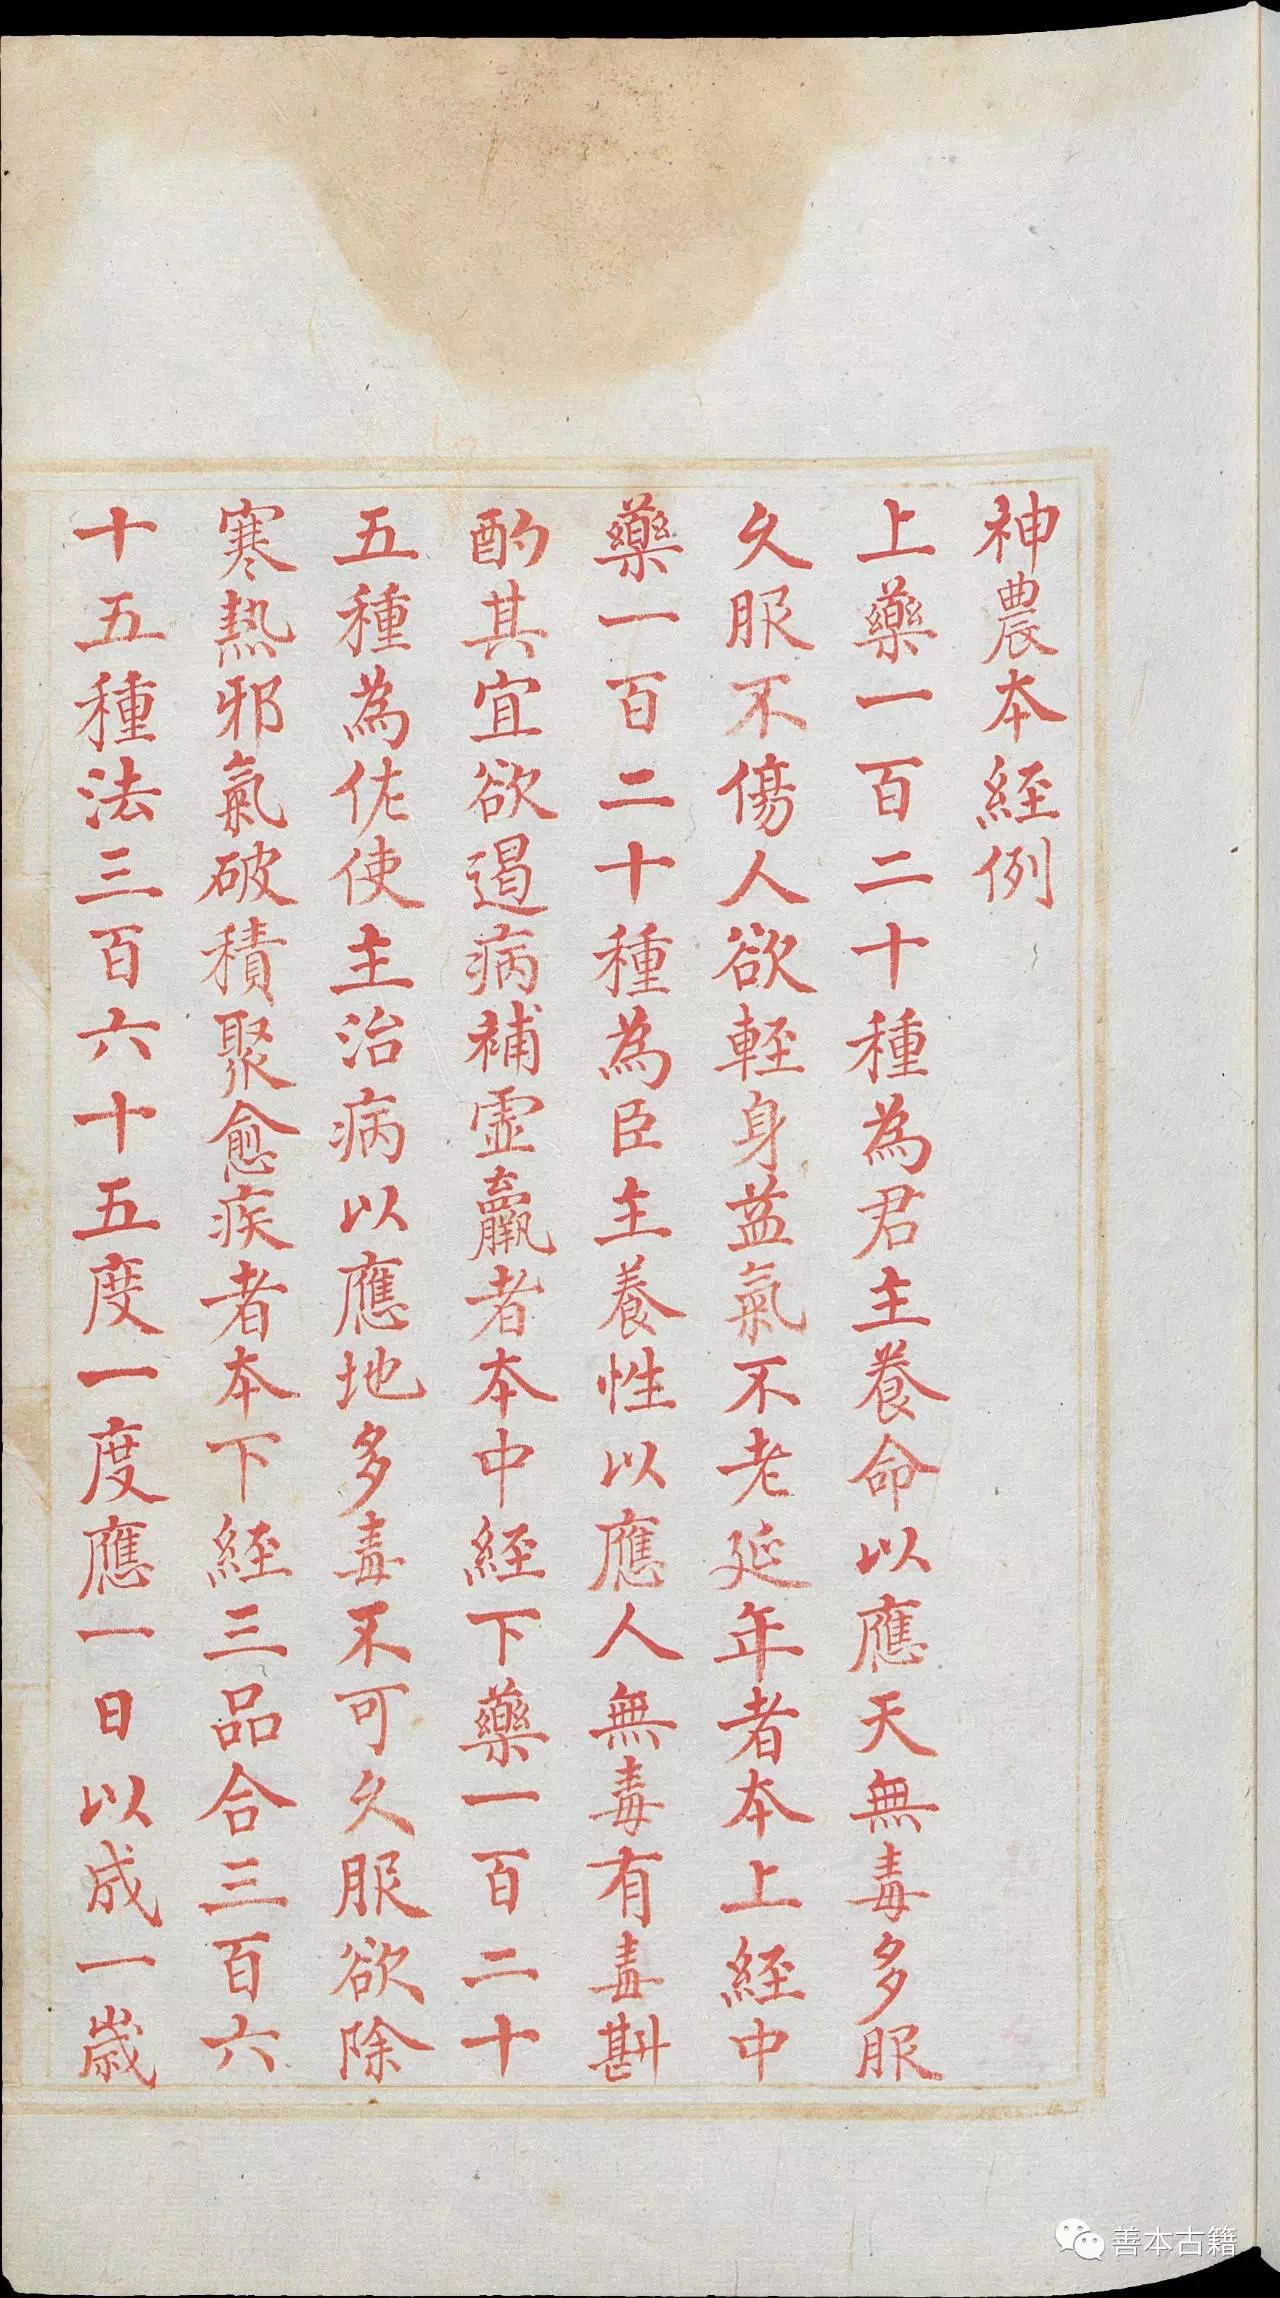 神農本經例
上藥一百二十種為君主養命以應天無毒多服
久服不傷人欲輕身益氣不老延年者本上經中
藥一百二十種為臣主養性以應人無毒有毒斟
酌其宜欲遏病補虛羸者本中經下藥一百二十
五種為佐使主治病以應地多毒不可久服欲除
寒熱邪氣破積聚愈疾者本下經三品合三百六
十五種法三百六十五度一度應一日以成一歲
善本古籍